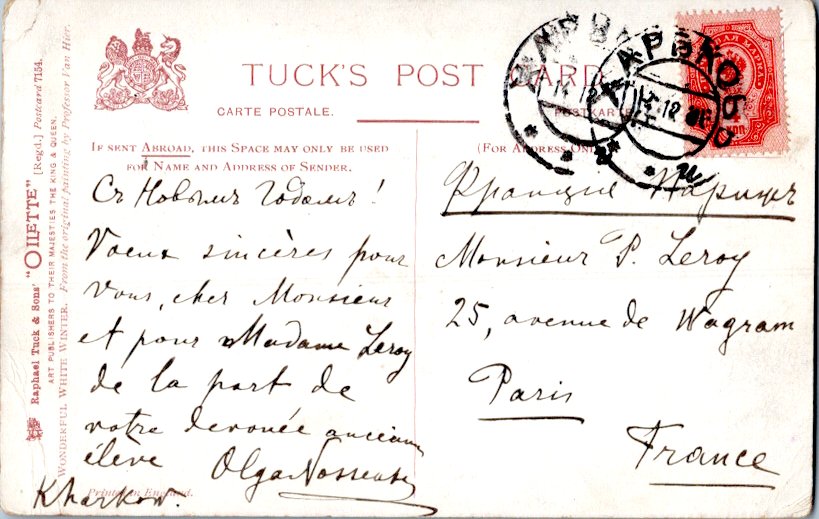 TUCK'S POST CARD
CARTE POSTALE.
POSTKARTE
IF SENT ABROAD, THIS SPACE MAY ONLY BE USED
FOR NAME AND ADDRESS OF SENDER.
(FOR ADDRESS ONLY)
Съ Новымъ Годомъ!
Voeux sincères pour
vous, cher Monsieur
et pour Madame Leroy
de la part de
votre devouée ancienne
élève Olga
Kharkow.
Printed in England.
Франція Парижъ
Monsieur P. Leroy
25, avenue de Wagram
Paris
France
Raphael Tuck & Sons' "OILETTE" [Regd.] Postcard 7154.
ART PUBLISHERS TO THEIR MAJESTIES THE KING & QUEEN.
WONDERFUL WHITE WINTER. From the original painting by Professor Van Hier.
ХАРЬКОВЪ
МАРКА
КОП